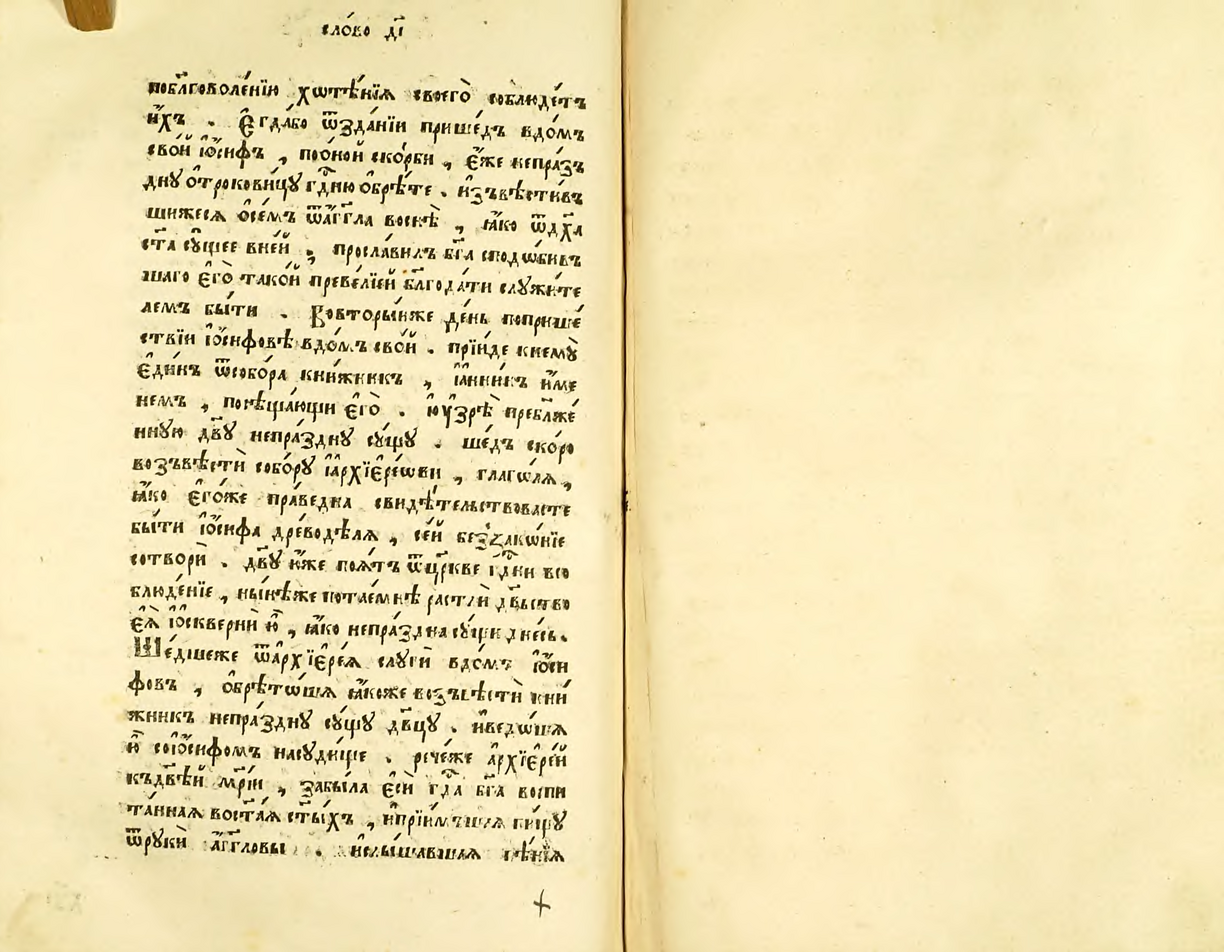 сло́во д҃і
поблг҃оволе́нїю хѡтѣ́нїѧ своего̀ соблюде́тъ
и҆́хъ . Е҆гда́бо ѿзда́нїи прише́дъ вдо́мъ
сво́й і҆ѡ́сифъ , поѻ́ной ско́рби , є҆́же непра́з
днꙋ ѻ҆трокови́цꙋ гдⷭ҇ню ѻ҆брѣ́те . и҆зъвѣсти́въ
шижесѧ ѻ҆се́мъ ѿа҆́гг҃ла воснѣ̀ , ꙗ҆́ко ѿдх҃а
ст҃а сꙋ́щее вне́й , просла́вилъ бг҃а сподѡ́бивъ
шаго є҆го̀ тако́й превелїей бл҃года́ти слꙋжи́те
лемъ бы́ти . Вовторы́йже де́нь поприше́
ствїи і҆ѡ́сифовѣ вдо́мъ сво́й . прїи́де кнемꙋ̀
є҆ди́нъ ѿсобо́ра кни́жникъ , і҆а́ннинъ и҆́ме
немъ , посѣща́ющи є҆го̀ . и҆ꙋзрѣ̀ пребл҃же́
ннꙋю дв҃ꙋ непра́зднꙋ сꙋ́щꙋ . ше́дъ ско́ро
возъвѣстѝ собо́рꙋ і҆а҆рхїє҆ре́ѡви , глаго́лѧ ,
ꙗ҆́ко є҆го́же пра́ведна свидѣ́тельствовасте
бы́ти і҆ѡ́сифа древодѣ́лѧ , се́й беззако́нїе
сотворѝ . дв҃ꙋ ю҆́же поѧ́тъ ѿцр҃кве гдⷭ҇ни всо
блюде́нїе , ны́нѣже пота́емнѣ растлѝ дв҃ьство
є҆ѧ̀ і҆ѡ҆скверни́ ю҆̀ , ꙗ҆́ко непра́здна сꙋ́щи дне́сь .
Ше́дшеже ѿа҆рхїє҆ре́ѧ слꙋгѝ вдо́мъ і҆ѡ́си
фовъ , ѻ҆брѣто́шѧ ꙗ҆́коже возъвѣстѝ кни́
жникъ непра́зднꙋ сꙋ́щꙋ дв҃цꙋ . и҆ведо́шѧ
ю҆̀ соі҆ѡ́сифомъ насꙋди́ще . рече́же а҆рхїє҆ре́й
къдв҃ѣй мр҃і́и , забы́ла є҆сѝ гдⷭ҇а бг҃а воспи
та́ннаѧ вост҃а́ѧ ст҃ы́хъ , и҆прїи́мъшаѧ пи́щꙋ
ѿрꙋкѝ а҆́гг҃ловы . и҆слы́шавшаѧ пѣ́нїѧ